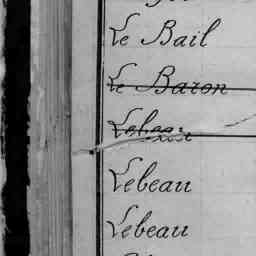 Le Bail
Le Baron
Lebeau
Lebeau